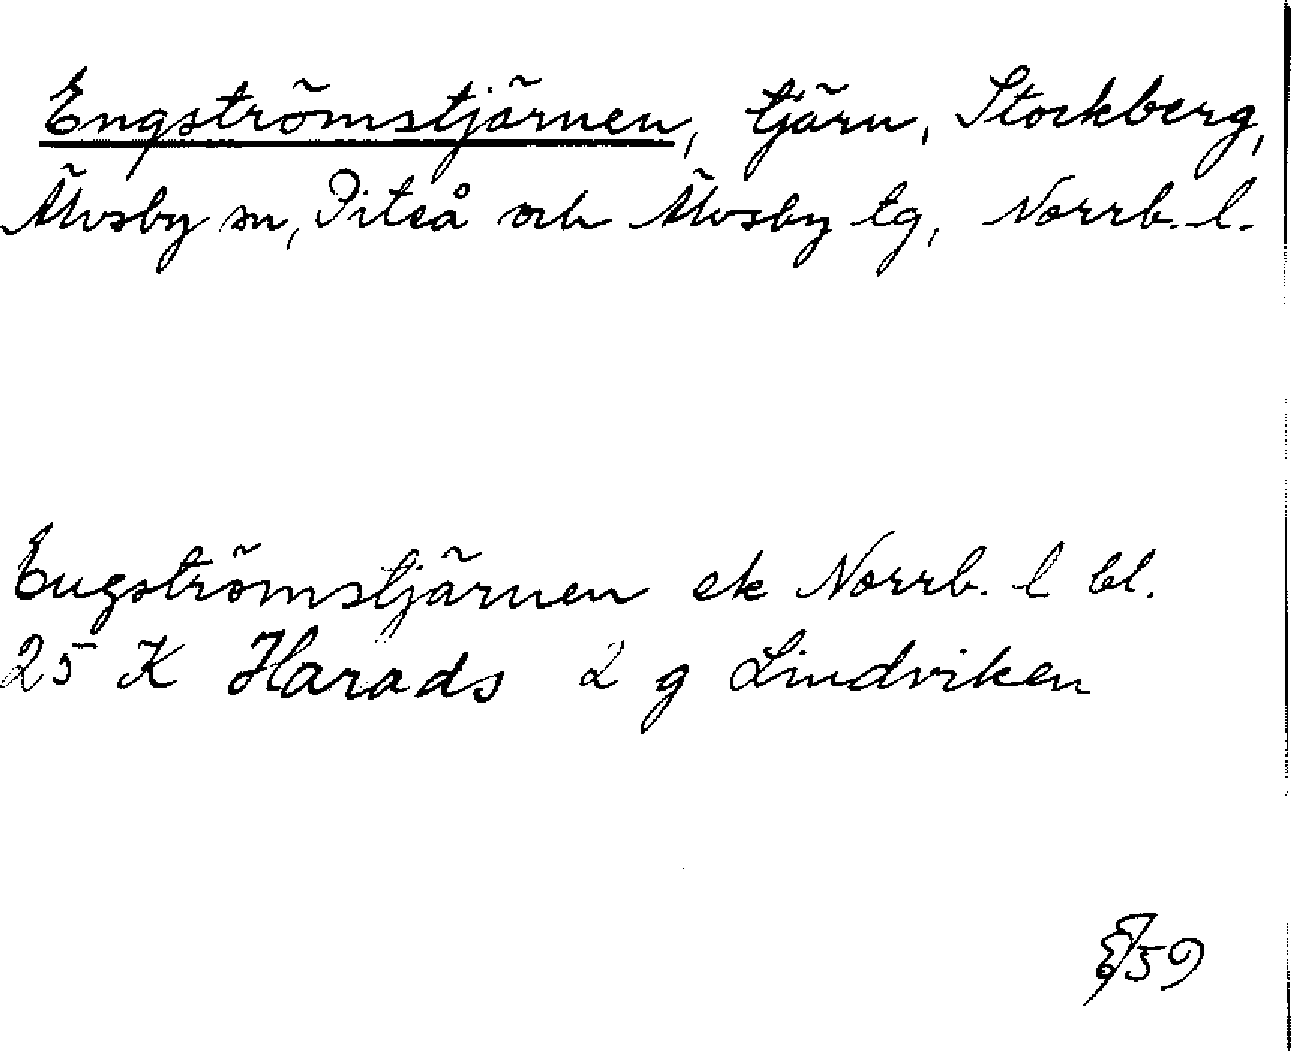 Engströmstjärnen, tjärn, Stockberg,
Älvsby sn, Piteå och Älvsby tg, Norrb. l.
Engströmstjärnen ek Norrb. l bl.
25 K Harads 2 g Lindviken
59